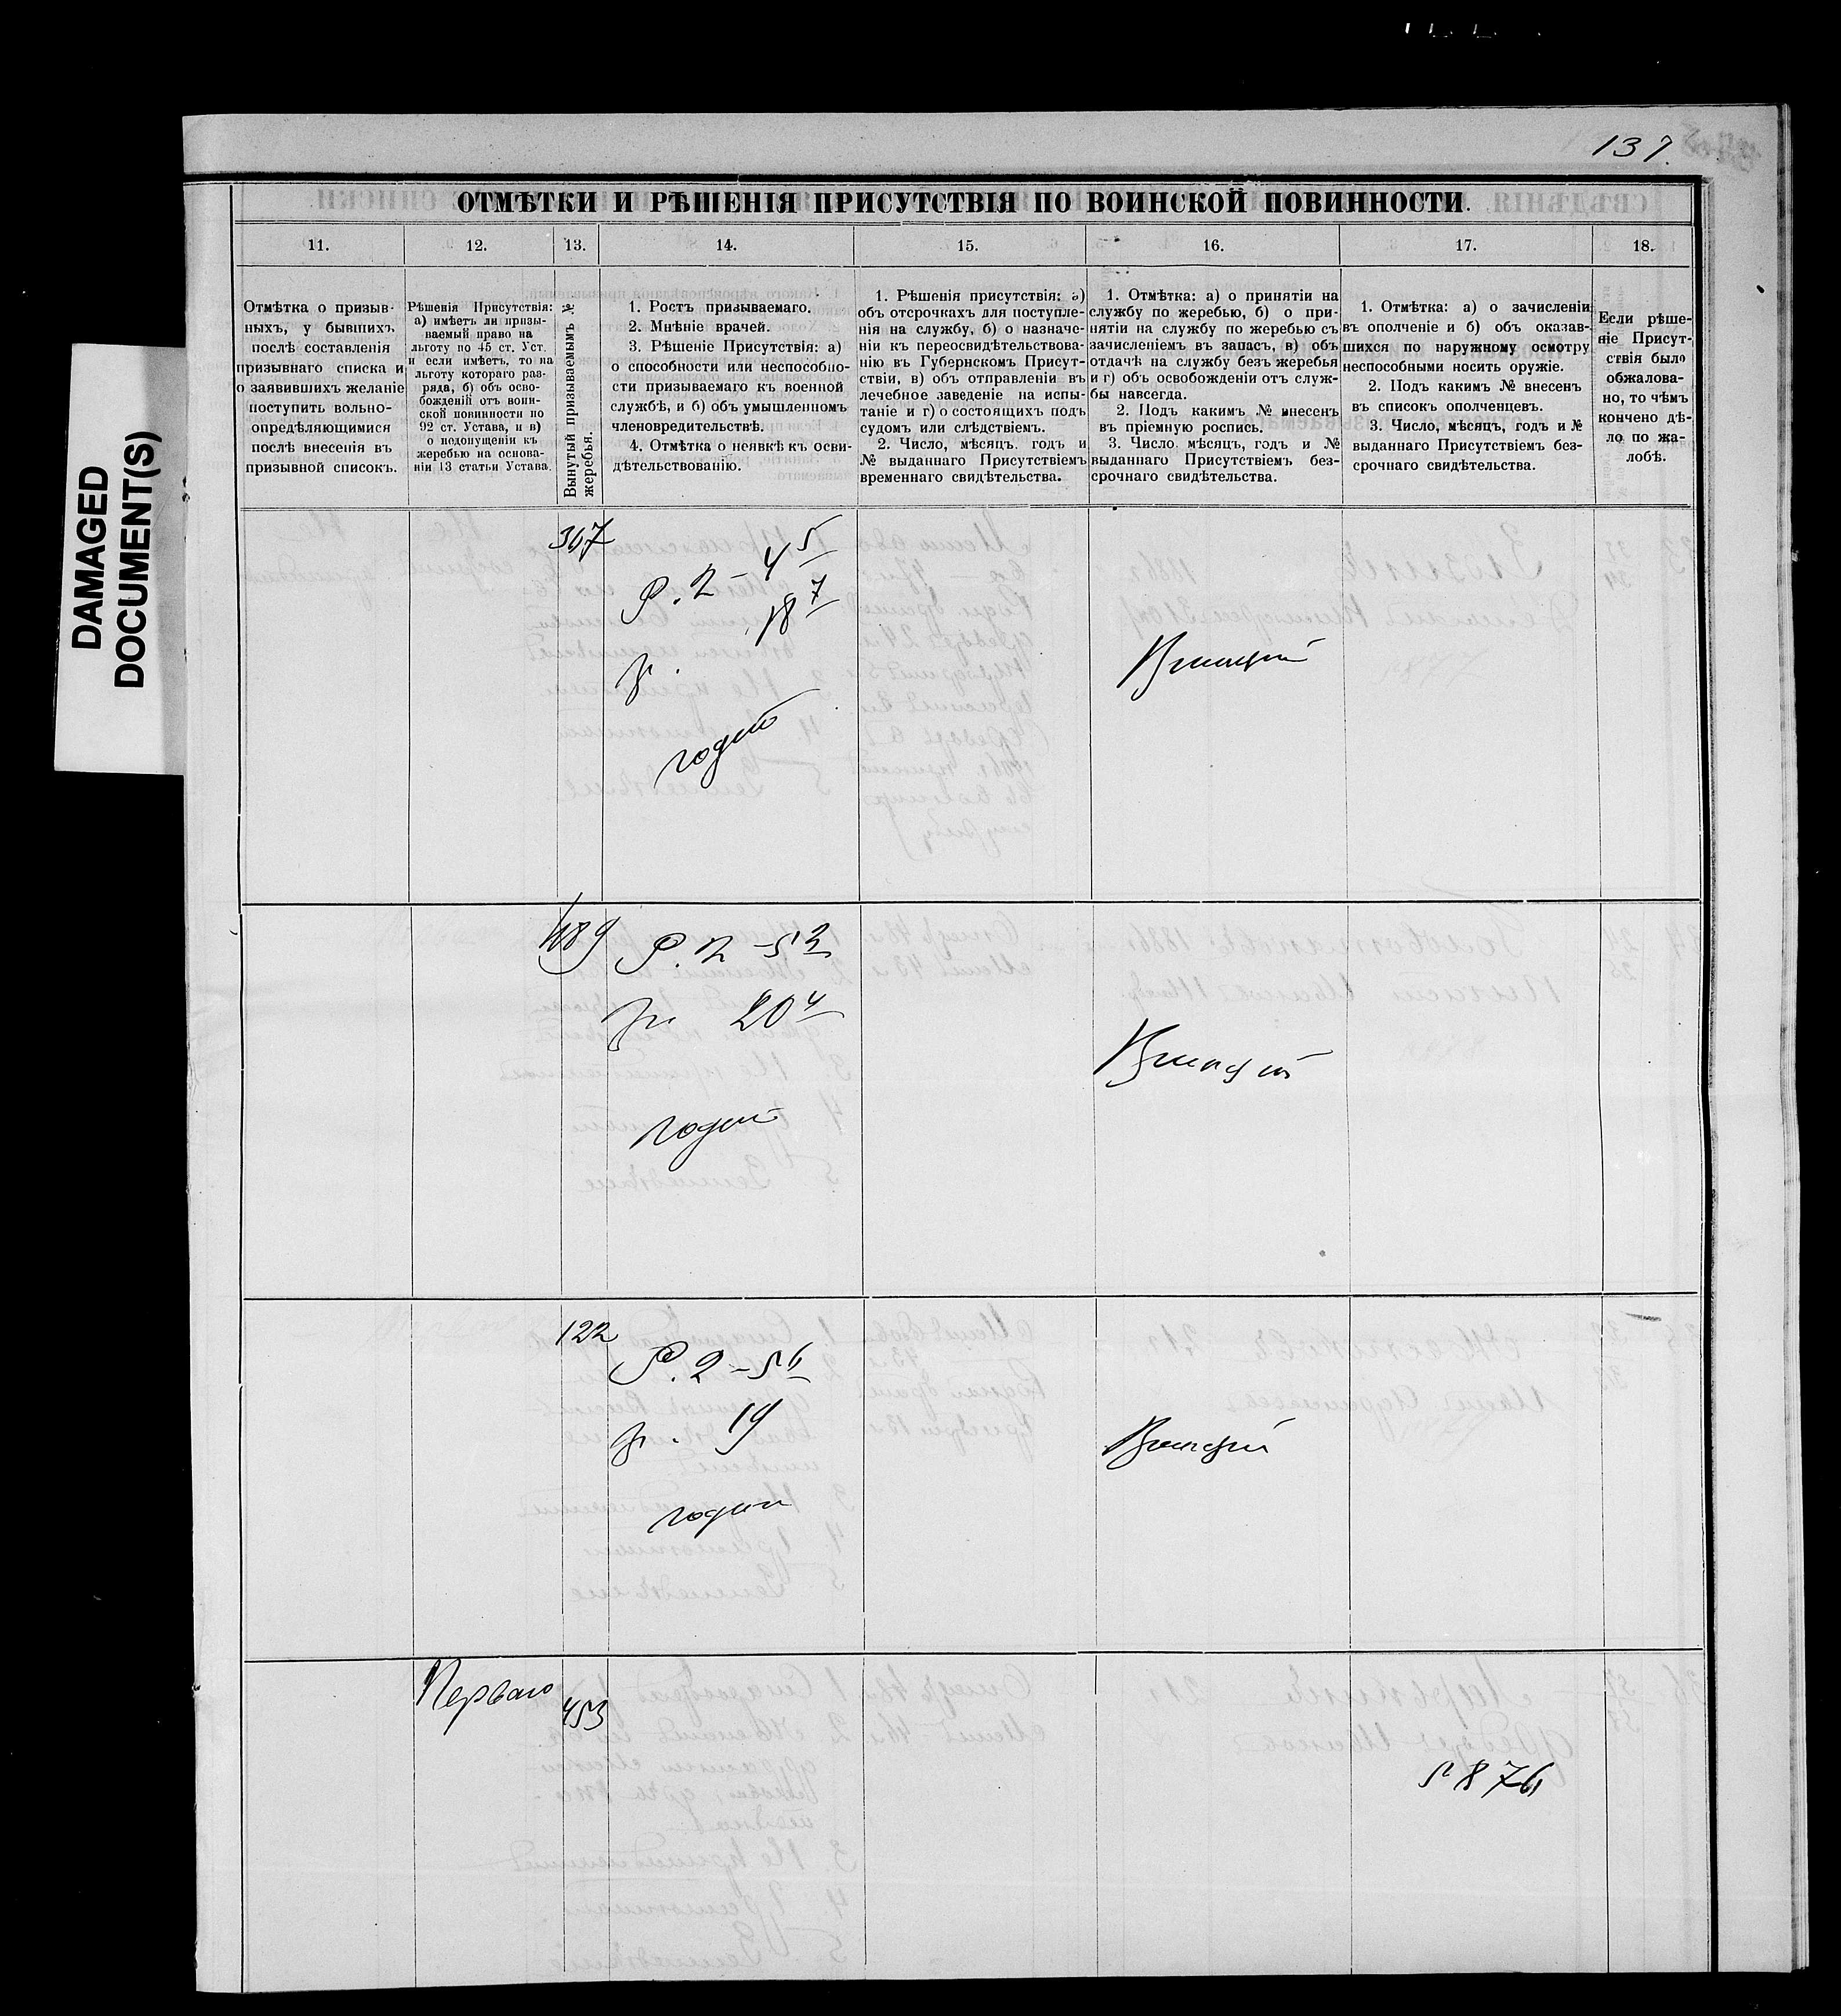 137.
DAMAGED
DOCUMENT(S)
ОТМѢТКИ И РѢШЕНІЯ ПРИСУТСТВІЯ ПО ВОИНСКОЙ ПОВИННОСТИ.
11.
12.
13.
14.
15.
16.
17.
18.
Отмѣтка о призыв-
ныхъ, у бывшихъ
послѣ составленія
призывнаго списка и
о заявившихъ желаніе
поступить вольно-
опредѣляющимися
послѣ внесенія въ
призывной списокъ.
Рѣшенія Присутствія:
а) имѣетъ ли призы-
ваемый право на
льготу по 45 ст. Уст.
и если имѣетъ, то на
льготу котораго раз-
ряда, б) объ осво-
божденіи отъ воин-
ской повинности по
92 ст. Устава, и в)
о недопущеніи къ
жеребью на основа-
ніи 13 статьи Устава.
Вынутый призываемымъ №
жеребья.
1. Ростъ призываемаго.
2. Мнѣніе врачей.
3. Рѣшеніе Присутствія: а)
о способности или неспособно-
сти призываемаго къ военной
службѣ, и б) объ умышленномъ
членовредительствѣ.
4. Отмѣтка о неявкѣ къ осви-
дѣтельствованію.
1. Рѣшенія присутствія: а)
объ отсрочкахъ для поступле-
нія на службу, б) о назначе-
ніи къ переосвидѣтельствова-
нію въ Губернскомъ Присут-
ствіи, в) объ отправленіи въ
лечебное заведеніе на испы-
таніе и г) о состоящихъ подъ
судомъ или слѣдствіемъ.
2. Число, мѣсяцъ, годъ и
№ выданнаго Присутствіемъ
временнаго свидѣтельства.
1. Отмѣтка: а) о принятіи на
службу по жеребью, б) о при-
нятіи на службу по жеребью съ
зачисленіемъ въ запасъ, в) объ
отдачѣ на службу безъ жеребья
и г) объ освобожденіи отъ служ-
бы навсегда.
2. Подъ какимъ № внесенъ
въ пріемную роспись.
3. Число, мѣсяцъ, годъ и №
выданнаго Присутствіемъ без-
срочнаго свидѣтельства.
1. Отмѣтка: а) о зачисленіи
въ ополченіе и б) объ оказав-
шихся по наружному осмотру
неспособными носить оружіе.
2. Подъ какимъ № внесенъ
въ списокъ ополченцевъ.
3. Число, мѣсяцъ, годъ и №
выданнаго Присутствіемъ без-
срочнаго свидѣтельства.
Если рѣше-
ніе Присут-
ствія было
обжалова-
но, то чѣмъ
кончено дѣ-
ло по жа-
лобѣ.
367
Р. 2 - 4 5
18 7
годенъ
489
Р. 2 - 5 3
20 4
годенъ
122
Р. 2 - 5 6
19
годенъ
Перваго
453
5876